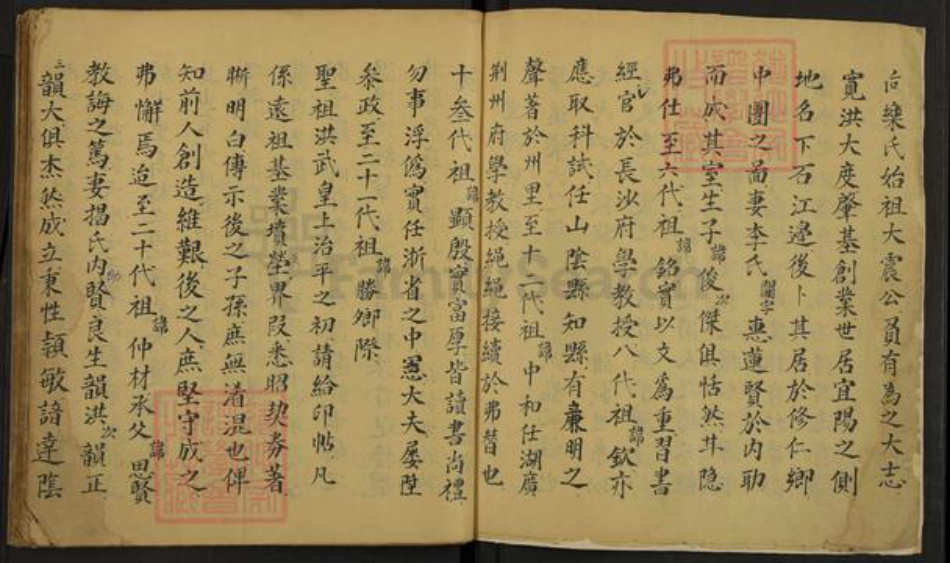 樂氏始祖大震公員有為之大志
寬洪大度肇基創業世居宜陽之側
地名下石江邊後卜其居於修仁鄉
中團之而妻李氏閨字惠蓮賢於內助
而成其室生子諱俊次傑俱恬然丘隐
弗仕至六代祖諱銘實以文為重習書
經官於長沙府學教授八代祖諱欽亦
應取科試任山陰縣知縣有亷明之
聲著於州里至十二代祖諱中和任湖廣
荆州府學教授繩繩接續於弗替也
十叁代祖諱顯殷實富厚皆讀書尚禮
勿事浮僞實任浙省之中憲大夫屡陞
叅政至二十一代祖諱勝卿際
聖祖洪武皇上治平之初請給印帖凡
係遠祖基業墳塋界段悉照契券著
晰明白傳示後之子孫庶無淆混也俾
知前人創造維艱後之人庶堅守成之
弗懈焉迨至二十代祖諱仲材承父諱思賢
教誨之篤妻揭氏內助賢良生韻洪次韻正
三韻大俱杰然成立秉性頴敏諳達陰
FamilySearch